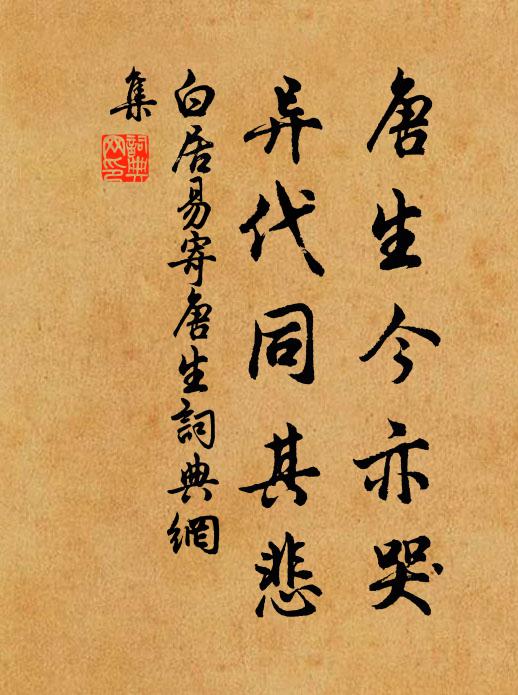 唐生今亦哭
异代同其悲
白居易寄唐生詞典網
集
詞典网印